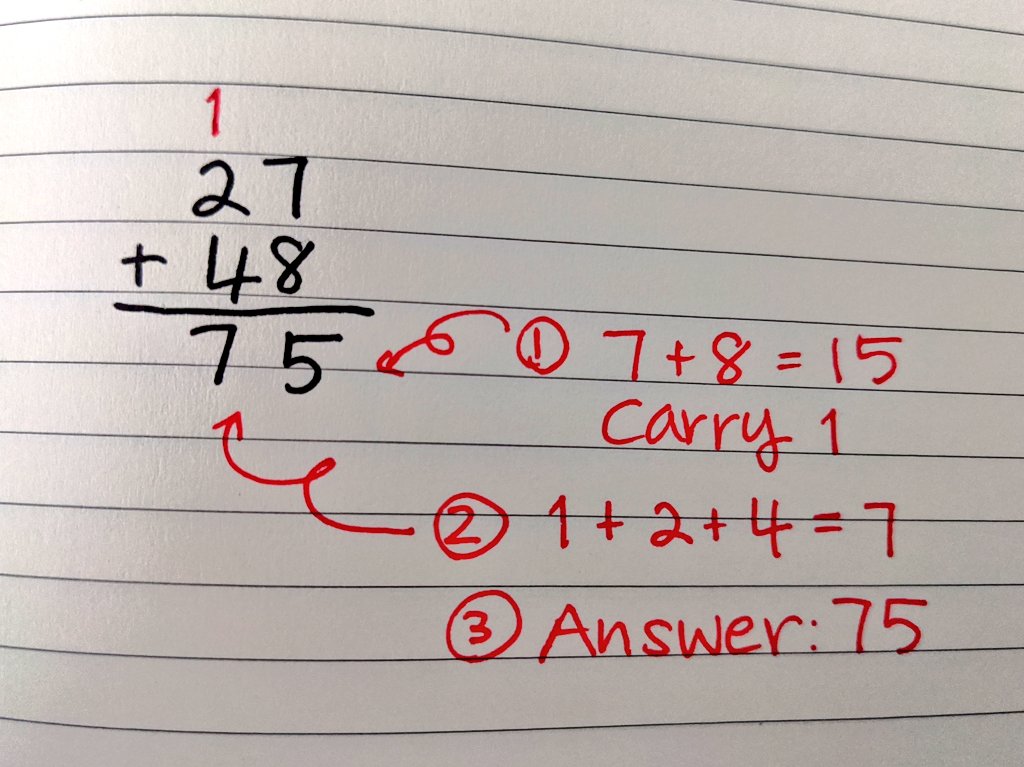 1
27
+ 48
75
① 7 + 8 = 15
Carry 1
② 1 + 2 + 4 = 7
③ Answer: 75